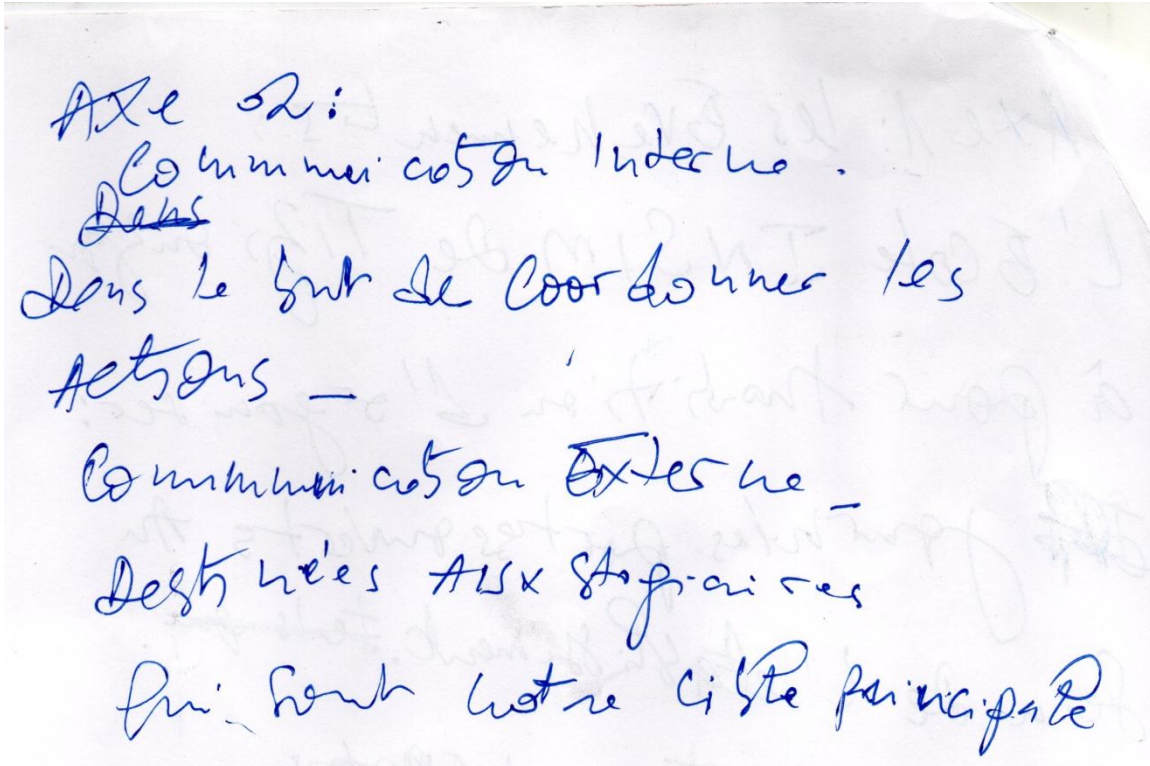 Axe 02:
Communication Interne.
Dans
Dans le but de Coordonner les
Actions _
Communication Externe _
Destinées Aux stagiaires
Qui sont notre cible principale